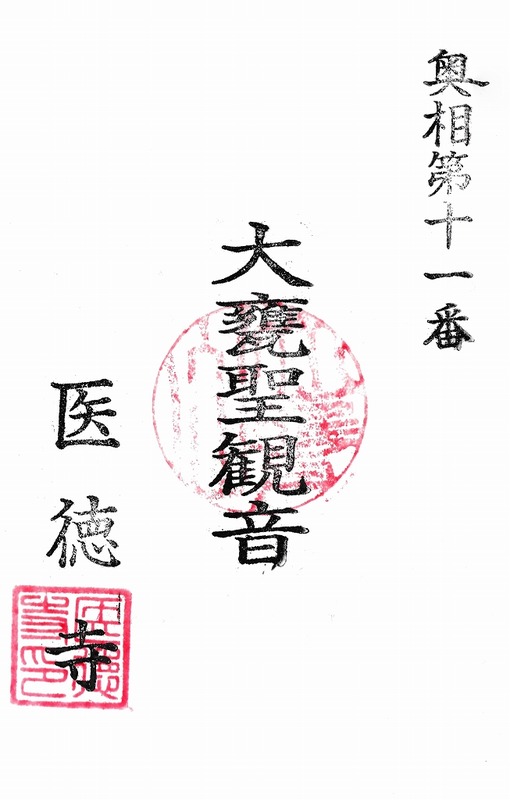 奥相第十一番
大甕聖観音
医徳寺